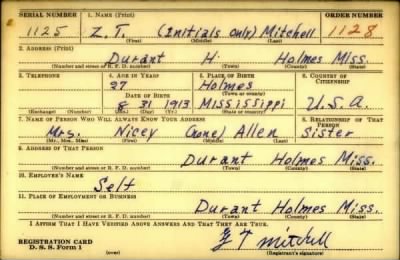 SERIAL NUMBER 1. NAME (Print) ORDER NUMBER
1125 Z. T. (Initials only) Mitchell 1128
(First) (Middle) (Last)
2. ADDRESS (Print)
Durant H Holmes Miss.
(Number and street or R. F. D. number) (Town) (County) (State)
3. TELEPHONE 4. AGE IN YEARS 5. PLACE OF BIRTH 6. COUNTRY OF CITIZENSHIP
27 Holmes
(Town or county)
DATE OF BIRTH
8 31 1913 Mississippi U.S.A.
(Exchange) (Number) (Mo.) (Day) (Yr.) (State or country)
7. NAME OF PERSON WHO WILL ALWAYS KNOW YOUR ADDRESS 8. RELATIONSHIP OF THAT PERSON
Mrs. Nicey (none) Allen Sister
(Mr., Mrs., Miss) (First) (Middle) (Last)
9. ADDRESS OF THAT PERSON
Durant Holmes Miss.
(Number and street or R. F. D. number) (Town) (County) (State)
10. EMPLOYER'S NAME
Self
11. PLACE OF EMPLOYMENT OR BUSINESS
Durant Holmes Miss.
(Number and street or R. F. D. number) (Town) (County) (State)
I AFFIRM THAT I HAVE VERIFIED ABOVE ANSWERS AND THAT THEY ARE TRUE.
REGISTRATION CARD
D. S. S. Form 1 (over) Z T Mitchell
(Registrant's signature)